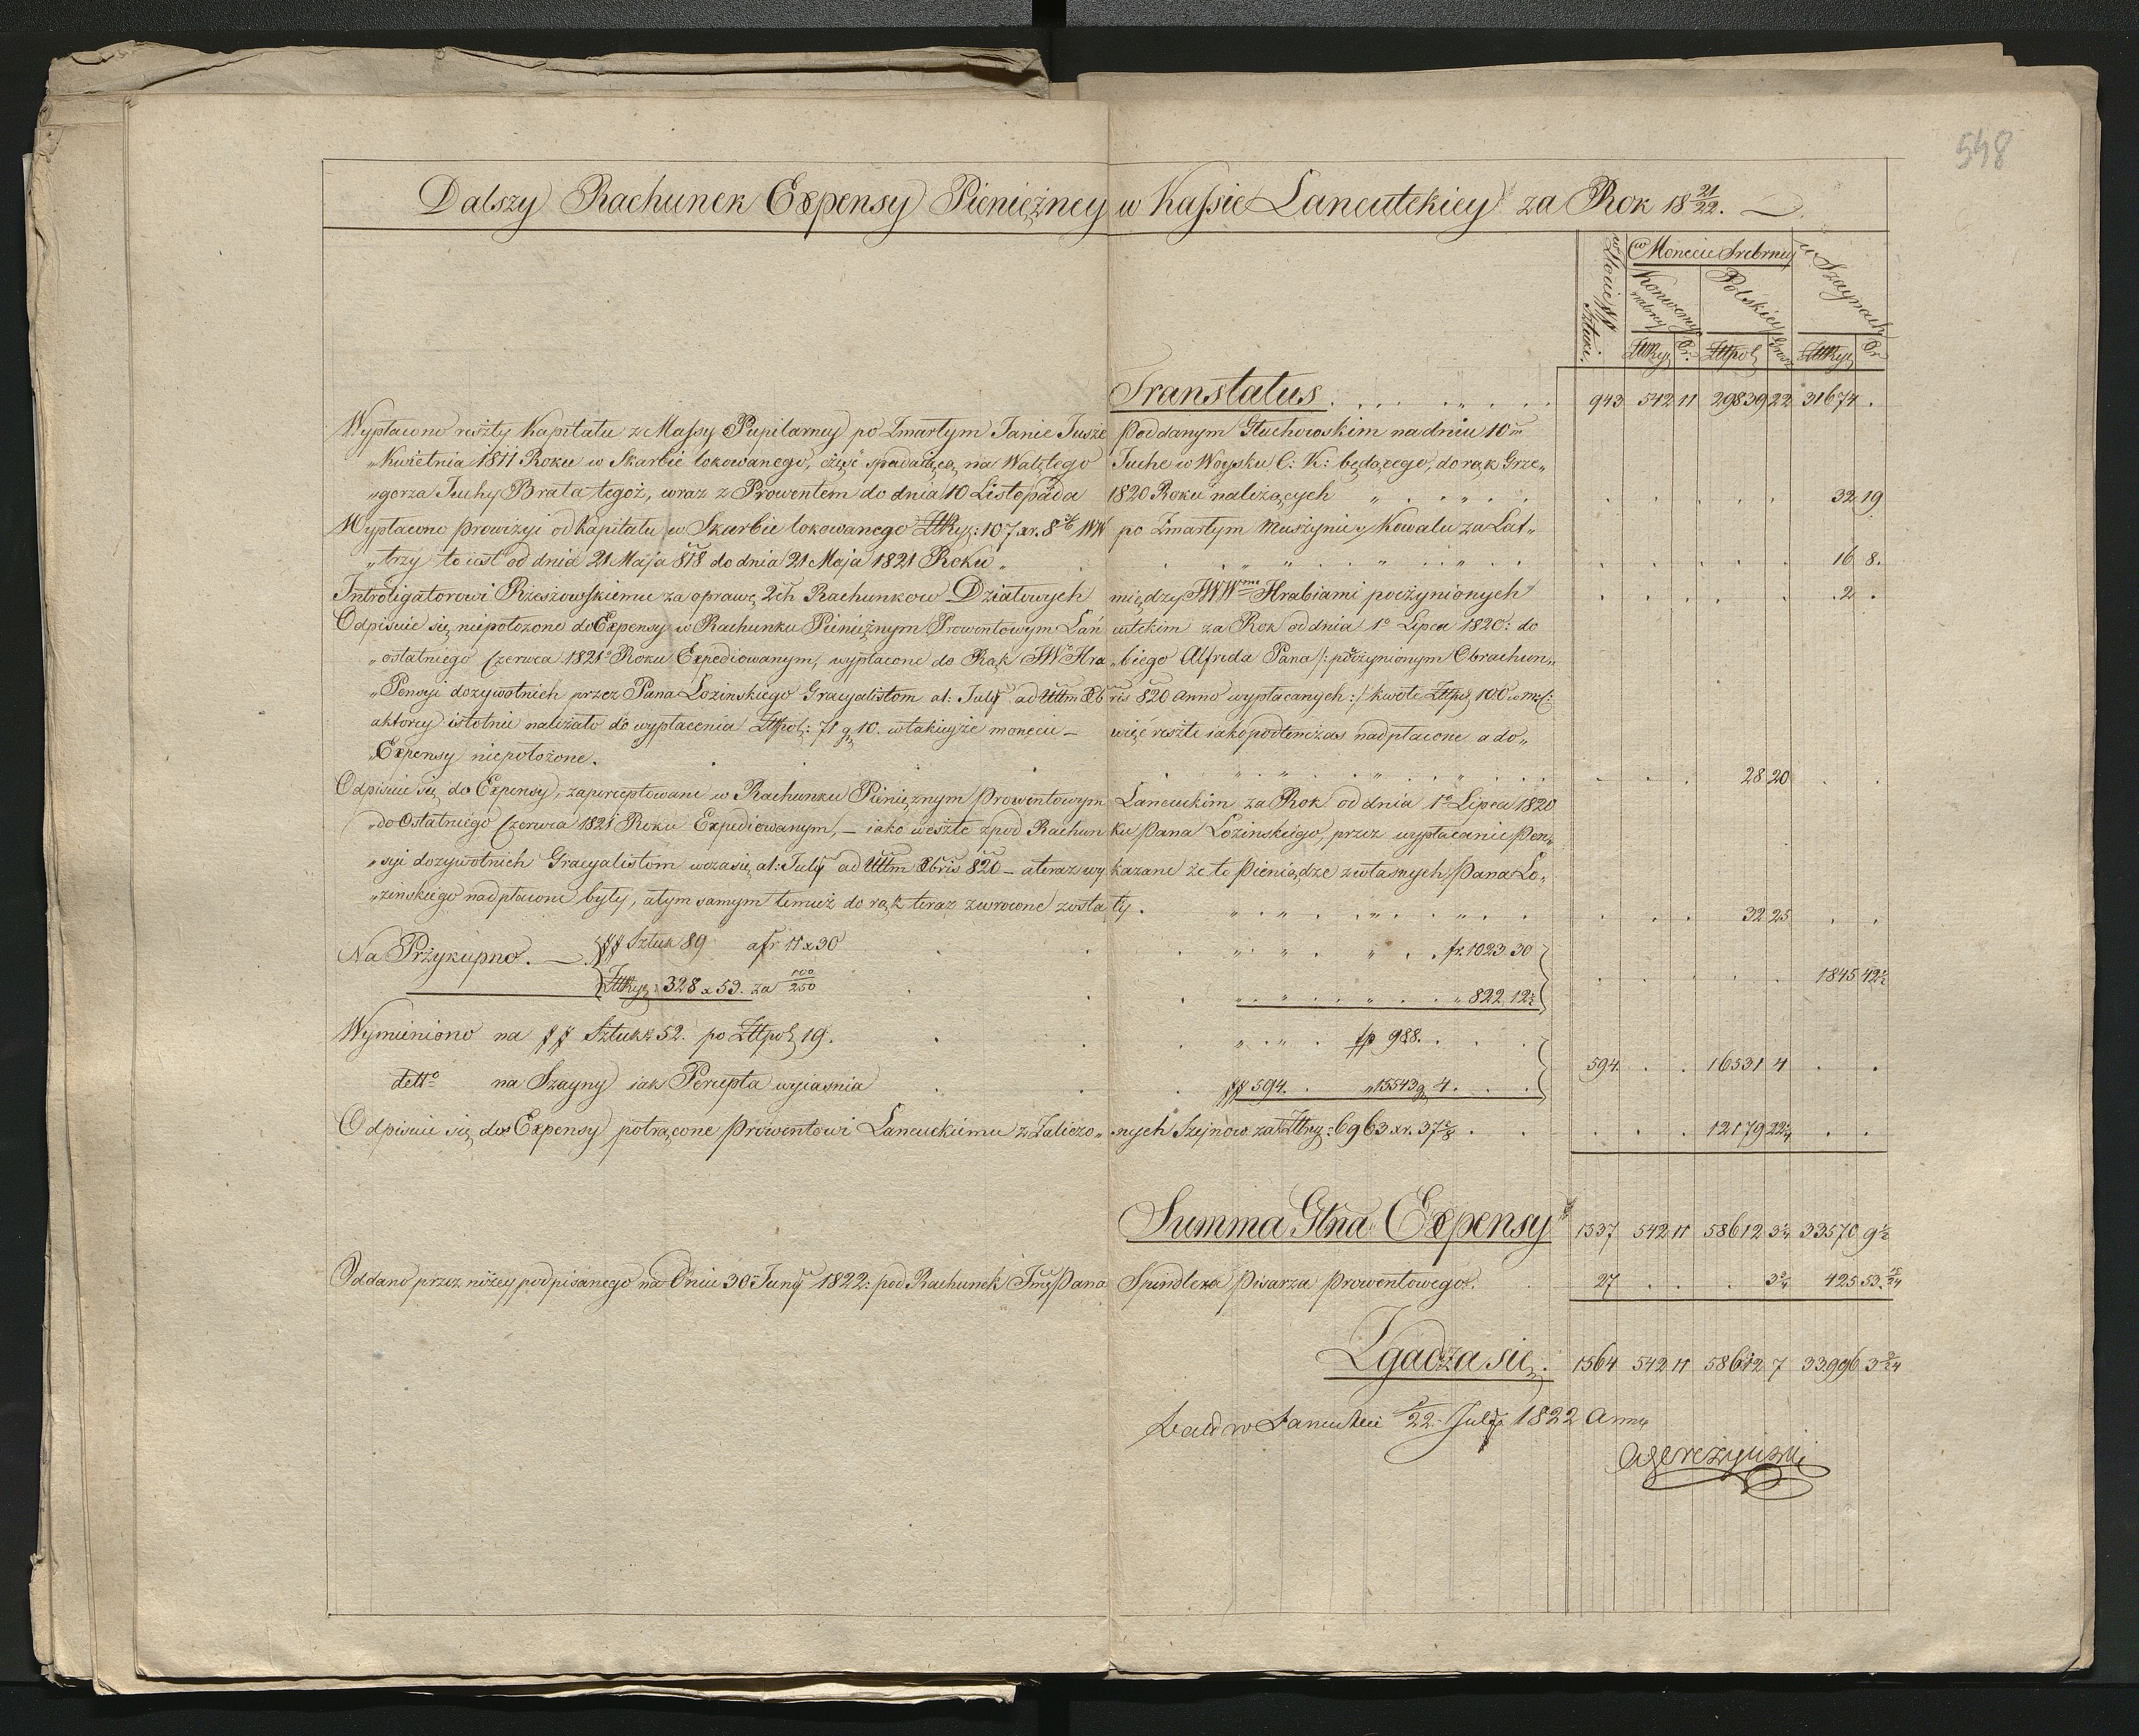 548
Dalszy Rachunek Expensy Pienięźney w Kaſsie Łancutckiey za Rok 18 21/22.
w Złocie ## Sztuki.
w Monecie Srebrney
w Szaynach
Konwencyonalney
Polskiey
ZłRy Xr. Złpol Grosz ZłRyz Xr
Transtatus 943 542 11 29839 22 31674 .
Wypłacono reszty Kapitału z Maſsy Pupilarney po Zmarłym Janie Jusze Poddanym Głuchowskim na dniu 10m
„Kwietnia 1811 Roku w Skarbie lokowanego, część spadaiącą na Walętego Juche w Woysku C: K: będącego, do rąk Grze„
„gorza Juchy Brata tegoż, wraz z Prowentem do dnia 10 Listopada 1820 Roku należących 32 19
Wypłacono prowizyi od Kapitału w Skarbie lokowanego ZłRyz: 107 xr. 8 3/6 WW po Zmarłym Muszynie Kowalu za Lat„
„trzy to iest od dnia 21 Maja 818 do dnia 21 Maja 1821 Roku 16 8.
Introligatorowi Rzeszowſkiemu za oprawę 2ch Rachunkow Działowych między JWW Hrabiami poczynionych 2 .
Odpisuie się niepołożone do Expensy w Rachunku Pieniężnym Prowentowym Łań cutckim za Rok od dnia 1o Lipca 1820: do
„ostatniego Czerwca 1821o Roku Expediowanym, wypłacone do Rąk JWo Hra„ „biego Alfreda Pana /: po uczynionym Obrachun„
„Pensyi dozywotnich przez Pana Łozinskiego Gracyalistom at: July ad Ultm Xb ris 820 Anno wypłacanych :/ kwote Złpol 100 w m C:
aktorey istotnie należało do wypłacenia Złpol: 71 g 10. w takieyże monecie – więć reszte iako podtenczas nadpłacone a do„
„Expensy niepołożone. 28 20
Odpisuie się do Expensy, zaperceptowane w Rachunku Pieniężnym Prowentowym Łancuckim za Rok od dnia 1o Lipca 1820
„do Ostatniego Czerwca 1821 Roku Expediowanym, – iako weszłe zpod Rachun ku Pana Łozinskiego, przez wypłacanie Pen„
„syi dozywotnich Gracyalistom w czasie at: July ad Ultm Xbris 820 – a teraz wy kazane że te Pieniądze z własnych Pana Ło„
„zenskiego nadpłacone były, a tym samym temuż do rąk teraz zwrocone zosta ły. 32 25
Na Przykupno. – ## Sztuk 89 a fr 11 x 30 fr. 1023 30
ZłRyz: 328 x 53. za 100/250 822 12½ 1845 42½
Wymieniono na ## Sztuk 52. po Złpol 19. fp 988.
detto na Szayny iak Percepta wyiasnia ## 594. „15543 g 4. 594. 16531 4
Odpisuie się do Expensy potrącone Prowentowi Łancuckiemu z Zaliczo„ nych Szejnow za Złry: 6963 xr. 37 12179 22¼
Summa Glna Expensy 1537 542 11 58612 3¼ 33570 9½
Oddano przez niżey podpisanego na Dniu 30 Juny 1822: pod Rachunek Pana Spindlera Pisarza Prowentowego. 27 3¾ 425 53
Zgadza się. 1564 542 11 58612 7 33996 3
Dato w Łancucie 22 July 1822 Anno